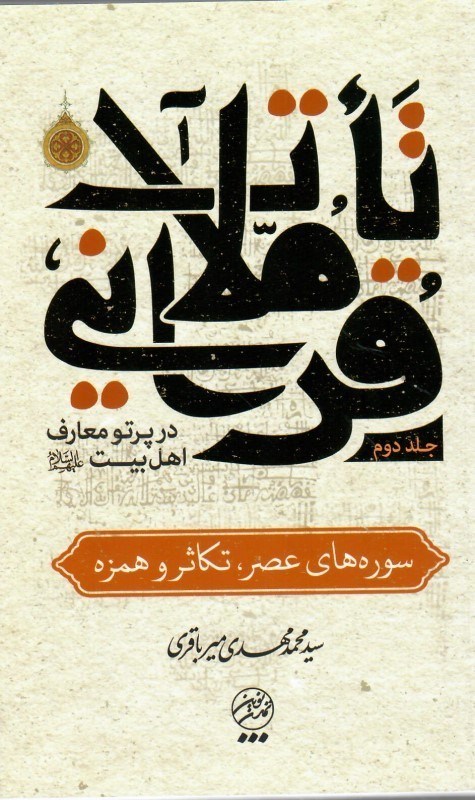 تأمّلات قرآنی
جلد دوم
در پرتو معارف
اهل بیت علیهم‌السلام
سوره‌های عصر، تکاثر و همزه
سید محمدمهدی میرباقری
تمدن نوین